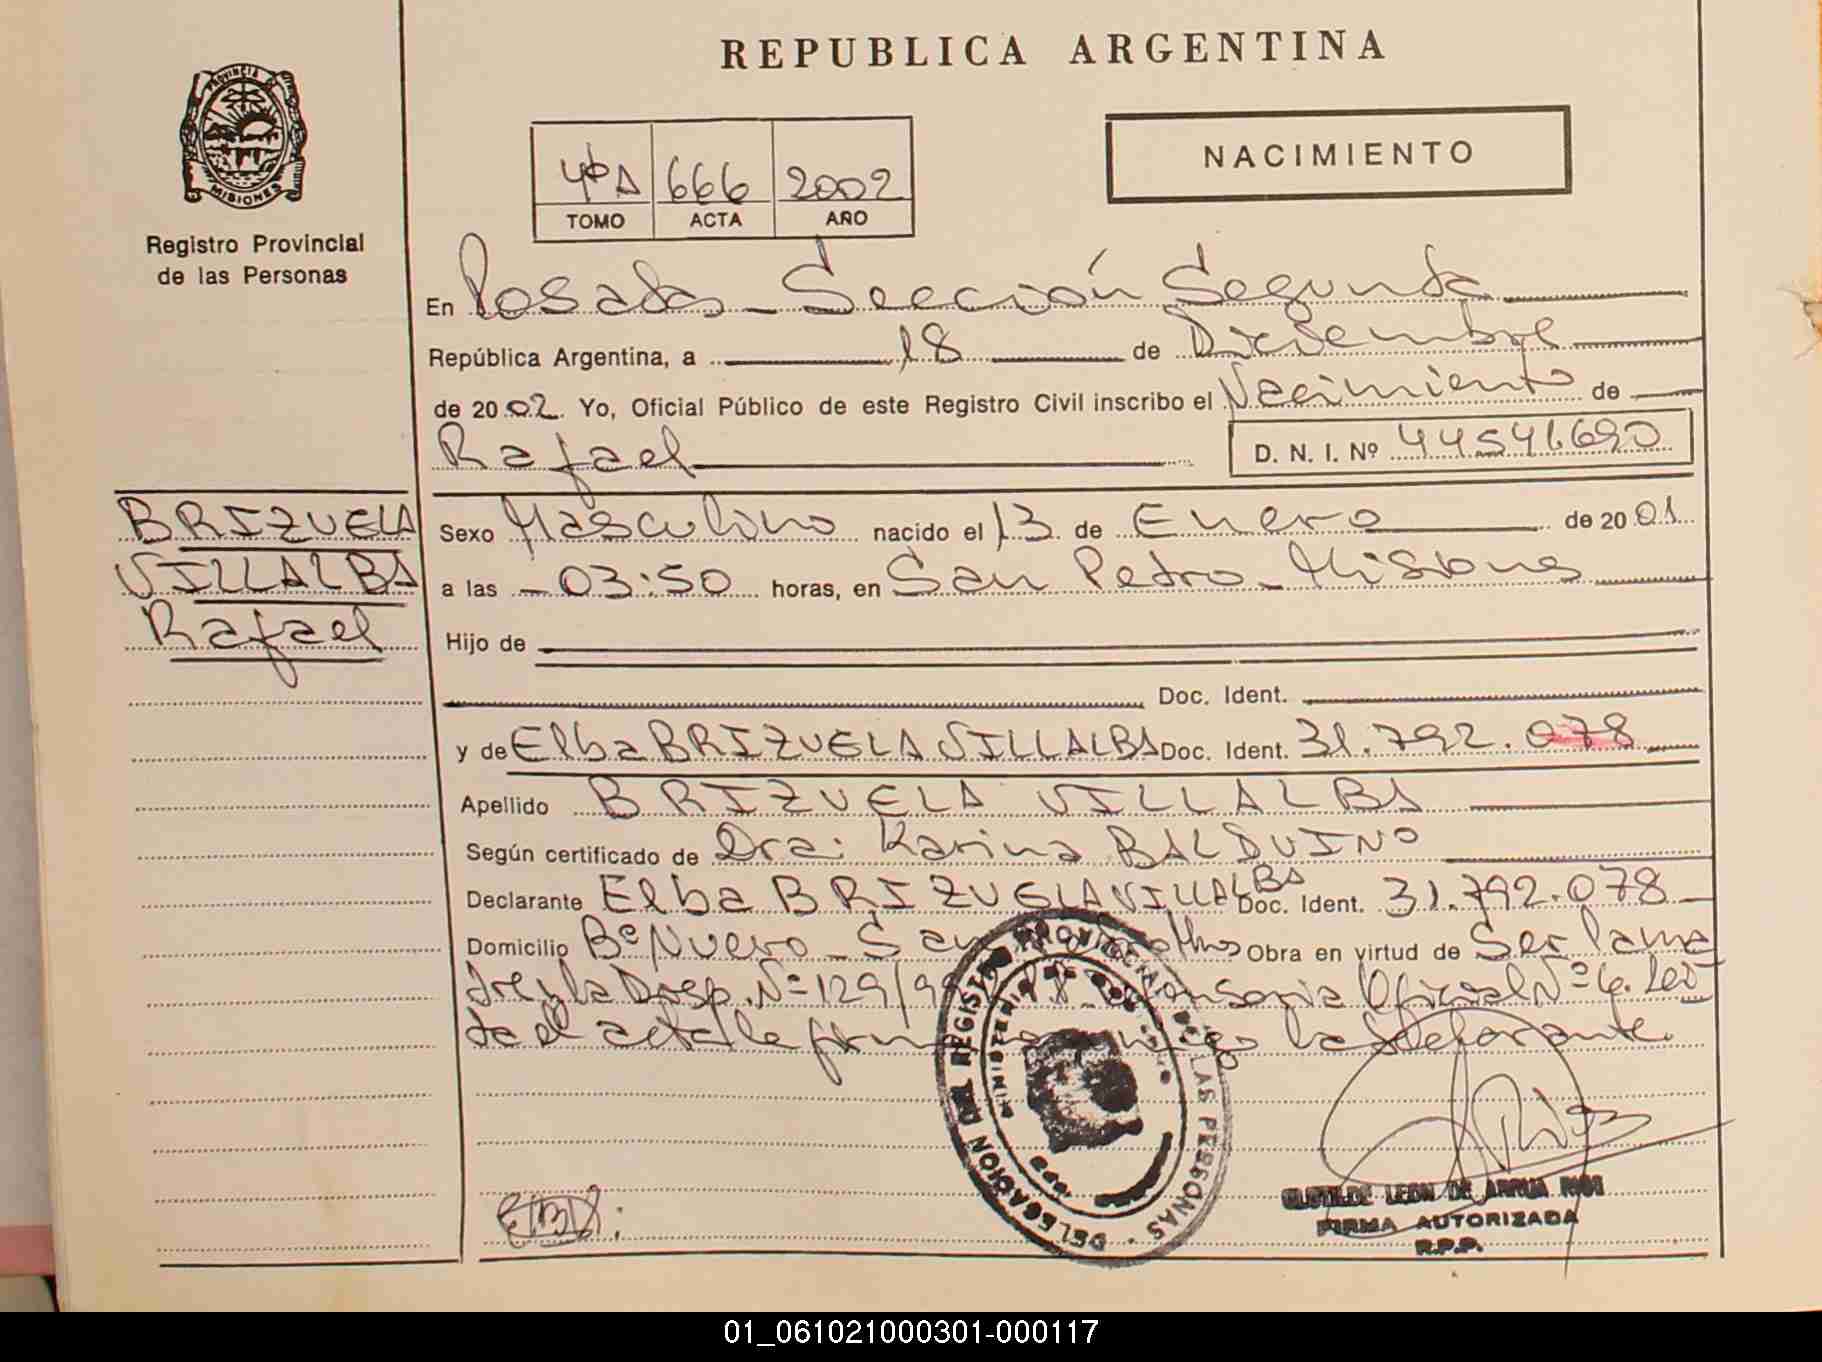 REPUBLICA ARGENTINA
PROVINCIA DE
MISIONES
Registro Provincial
de las Personas
NACIMIENTO
666 2002
TOMO ACTA AÑO
En Posadas - Sección Segunda
República Argentina, a 18 de Diciembre
de 2002. Yo, Oficial Público de este Registro Civil inscribo el Nacimiento de
Rafael D. N. I. Nº 44541.690
BRIZUELA
VILLALBA
Rafael
Sexo Masculino nacido el 13 de Enero de 2001
a las - 03:50 horas, en San Pedro - Misiones
Hijo de
Doc. Ident.
y de Elba BRIZUELA VILLALBA Doc. Ident. 31.792.078
Apellido BRIZUELA VILLALBA
Según certificado de Dra: Karina BALDUINO
Declarante Elba BRIZUELA VILLALBA Doc. Ident. 31.792.078
Domicilio Bº Nuevo - San Obra en virtud de Ser la ma
dre y la Disp. Nº 129/99 Oficial Nº 4. Leí
da el acta la firma la declarante
DELEGACION DEL REGISTRO PROVINCIAL DE LAS PERSONAS
MINISTERIO
CLOTILDE LEON DE ARRUA RIOS
FIRMA AUTORIZADA
R.P.P.
01_061021000301-000117